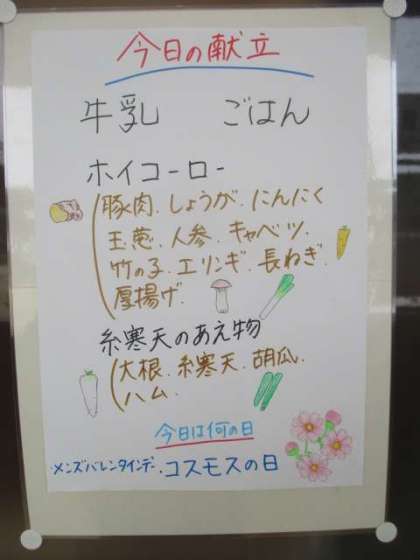 今日の献立
牛乳 ごはん
ホイコーロー
豚肉.しょうが.にんにく
玉葱.人参.キャベツ.
竹の子.エリンギ.長ねぎ.
厚揚げ.
糸寒天のあえ物
大根.糸寒天.胡瓜.
ハム.
今日は何の日
メンズバレンタインデー.コスモスの日